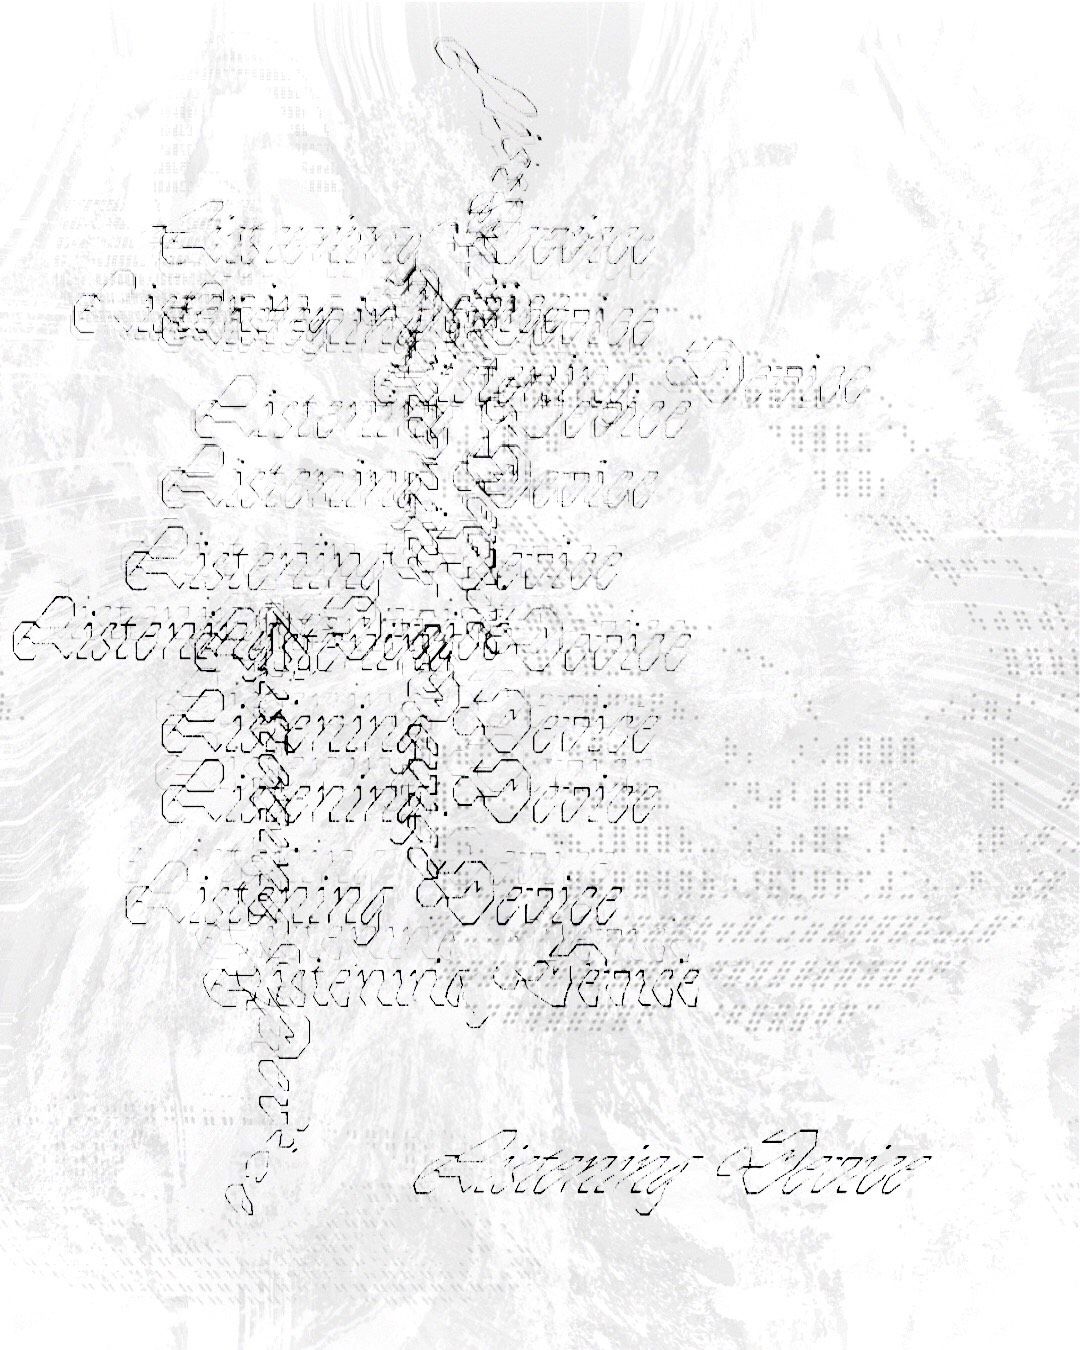 Listening Device
Listening Device
Listening Device
Listening Device
Listening Device
Listening Device
Listening Device
Listening Device
Listening Device
Listening Device
Listening Device
Listening Device
Listening Device
Listening Device
Listening Device
Listening Device
Listening Device